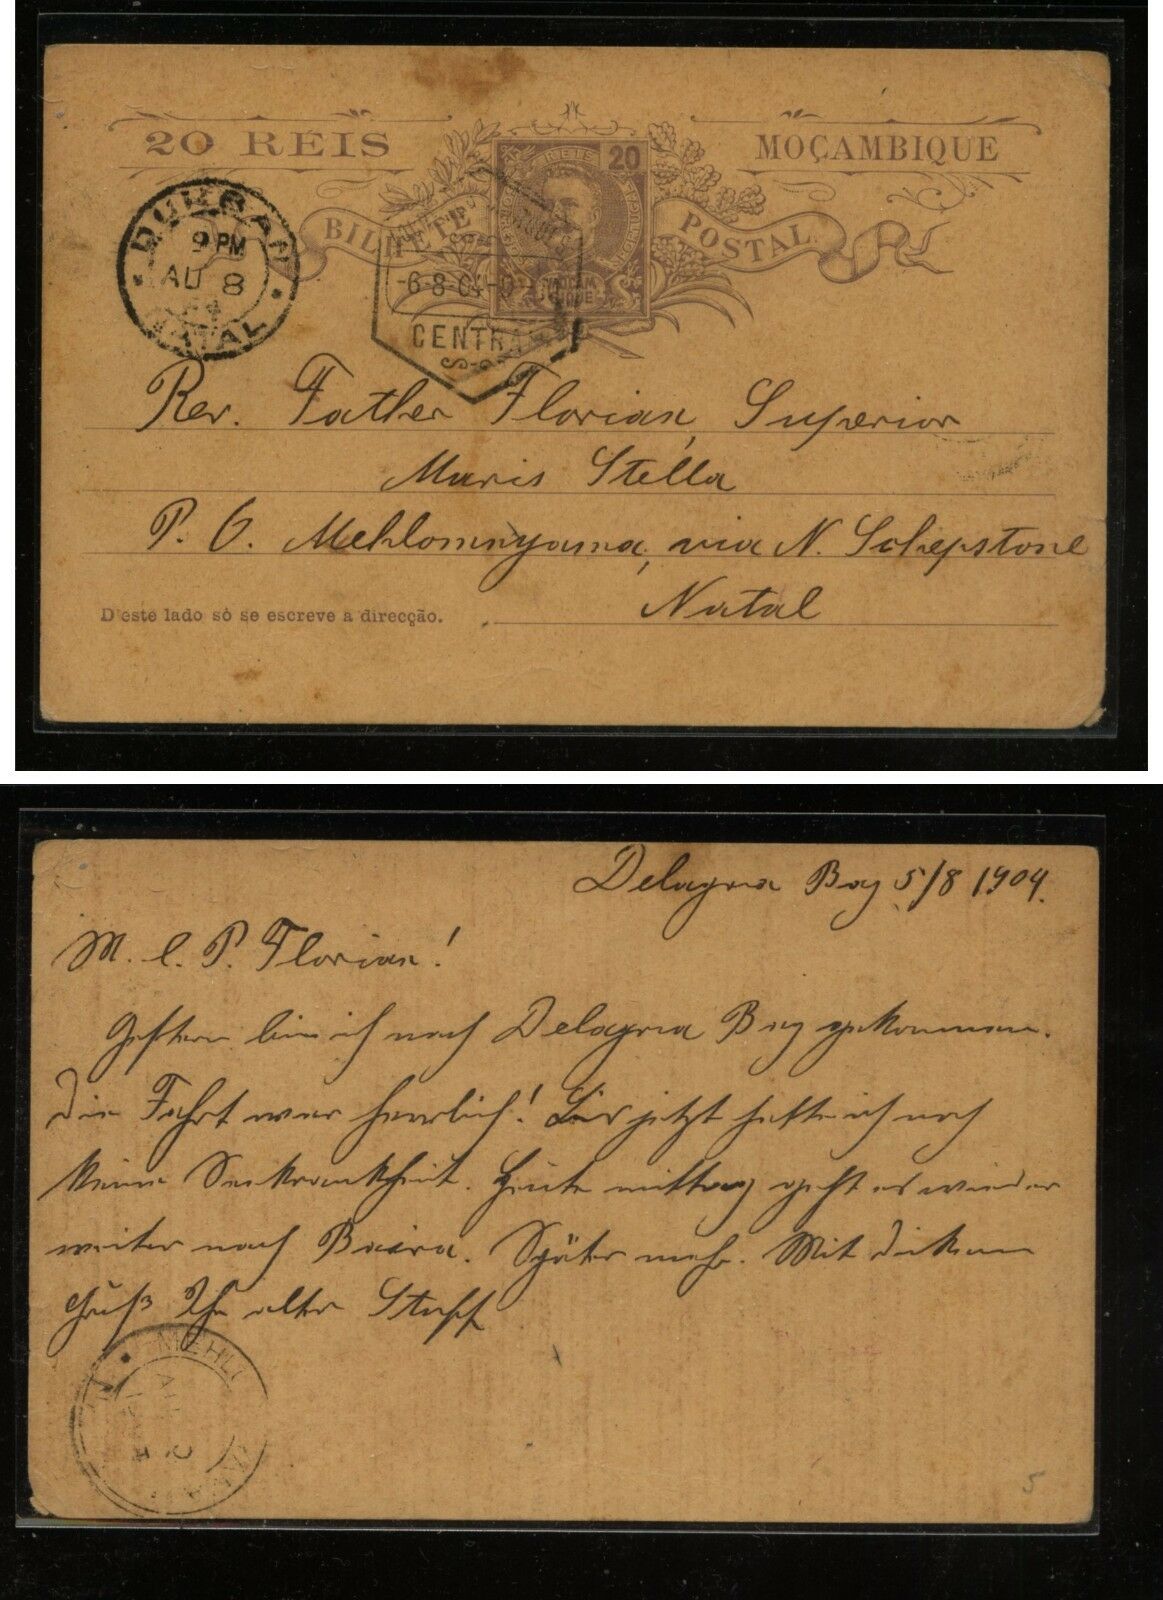 20 REIS
MOÇAMBIQUE
20
BILHETE POSTAL
DURBAN
9 PM
AU 8
04
NATAL
-6-8-04-
CENTRAL
Rev. Father Florian, Superior
Maris Stella
P. O. Mehlomnyama, via N. Schepstone
Natal
D'este lado só se escreve a direcção.
Delagoa Bay 5/8 1904.
M. l. P. Florian!
Gestern bin ich nach Delagoa Bay gekommen.
Die Fahrt war herrlich! Bis jetzt hatte ich noch
keine Seekrankheit. Heute mittag geht es wieder
weiter nach Baira. Später mehr. Mit dickem
Gruß Ihr alter
MEHL
AU
5